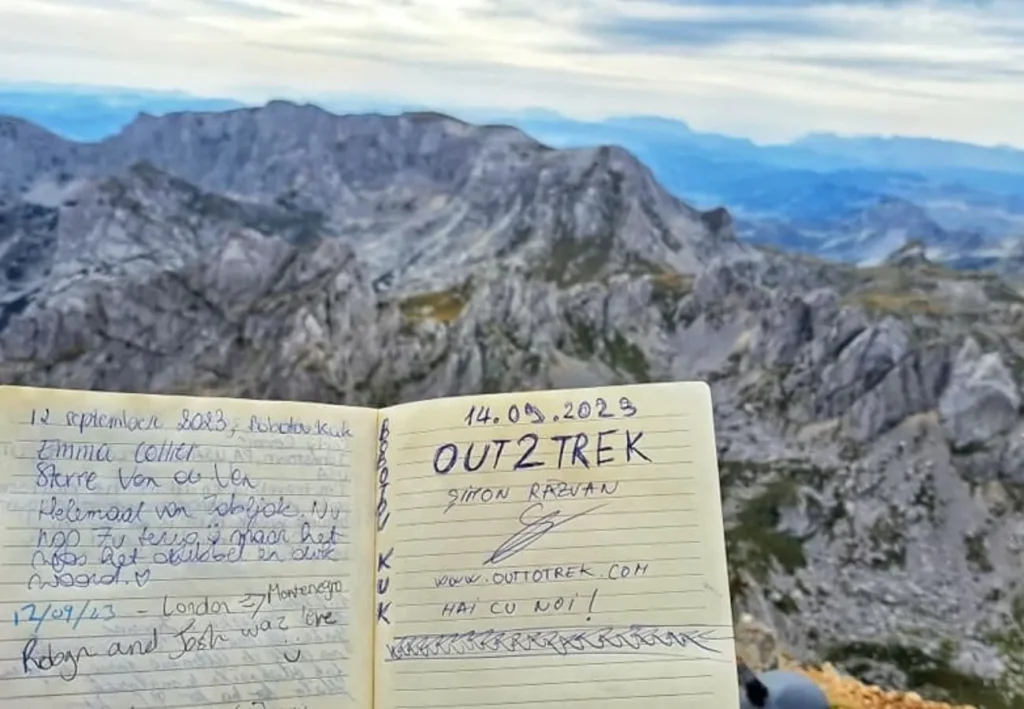 12 september 2023, Bobotov Kuk
Emma Collier
Sterre Van de Ven
Helemaal van Zabljak. Nu
nog zu terug maar het
was het dubbel en dwars
waard. ♡
12/09/23 - London => Montenegro
Robyn and Josh waz 'ere
BOBOTOV KUK
14.09.2023
OUT2TREK
SIMON RĂZVAN
WWW.OUTTOTREK.COM
HAI CU NOI!